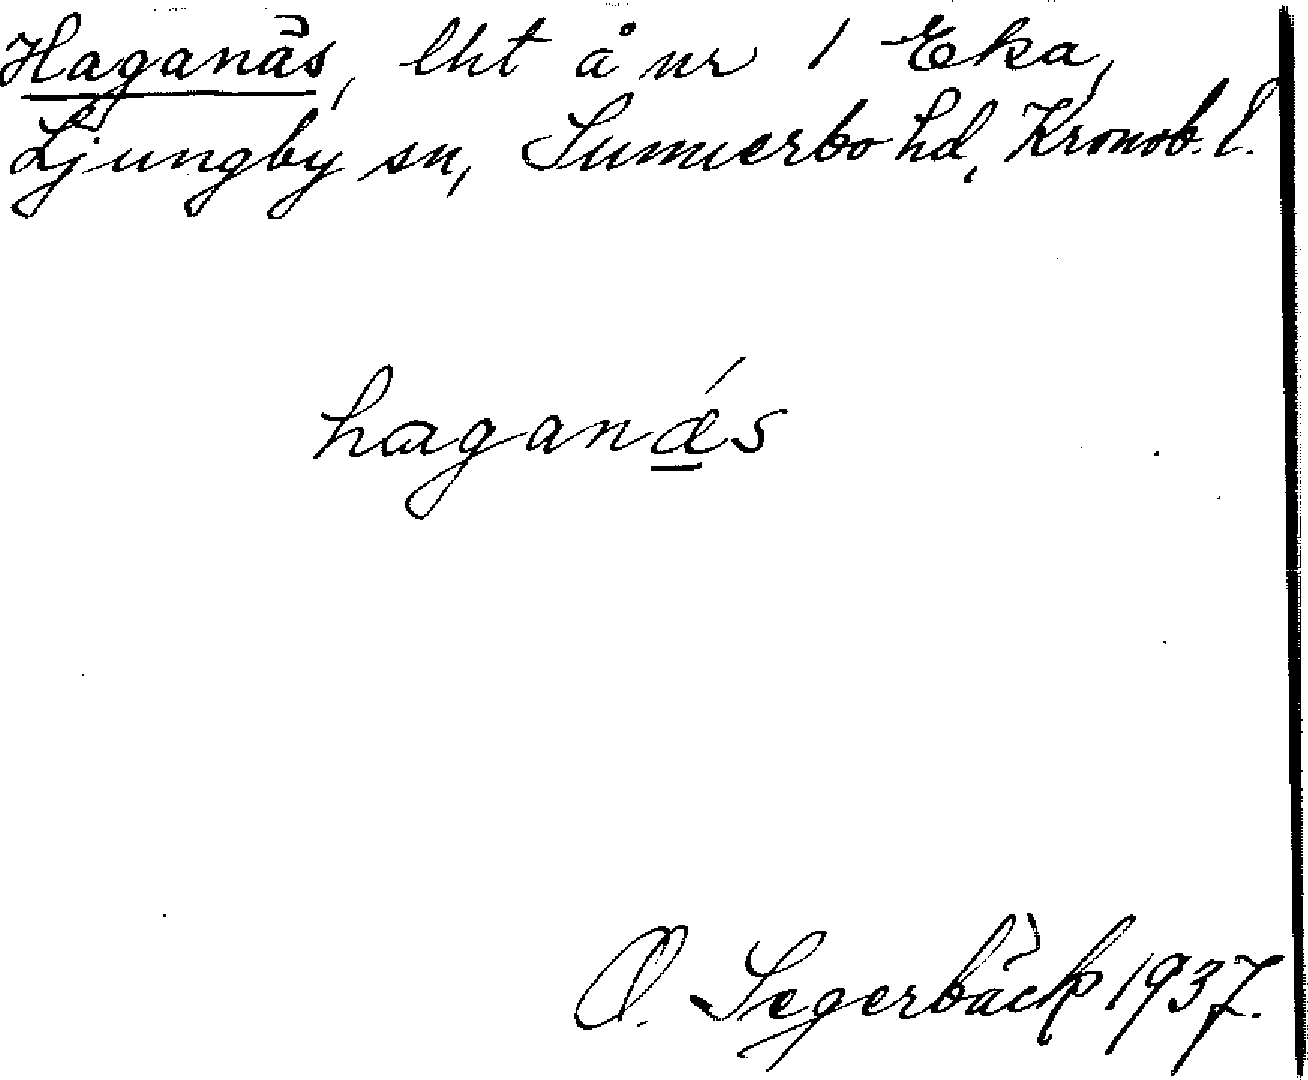 Haganäs, lht å nr 1 Eka,
Ljungby sn, Sunnerbo hd, Kronob. l.
haganæ´s
O. Segerbäck 1937.